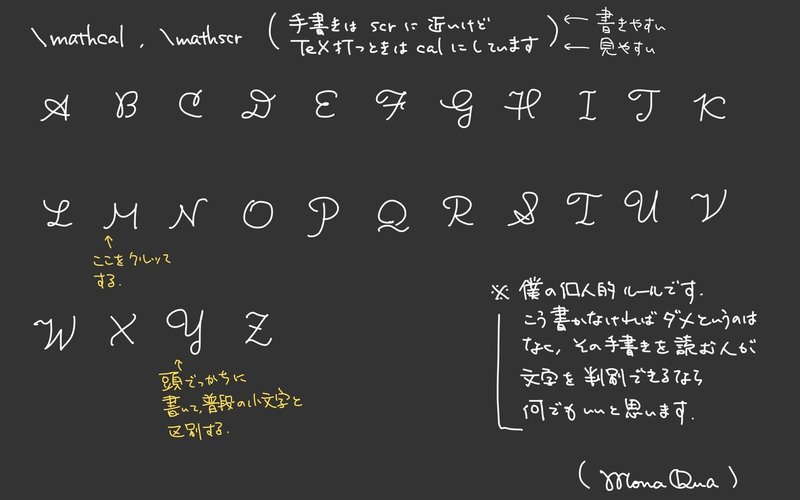 \mathcal, \mathscr (手書きは scr に近いけど ← 書きやすい
TeX打つときは cal にしています) ← 見やすい
A B C D E F G H I J K
L M N O P Q R S T U V
↑
ここをクルッて
する.
W X Y Z
↑
頭でっかちに
書いて,普段の小文字と
区別する.
※ 僕の個人的ルールです.
こう書かなければダメというのは
なく, その手書きを読む人が
文字を判別できるなら
何でもいいと思います.
(MonaQua)